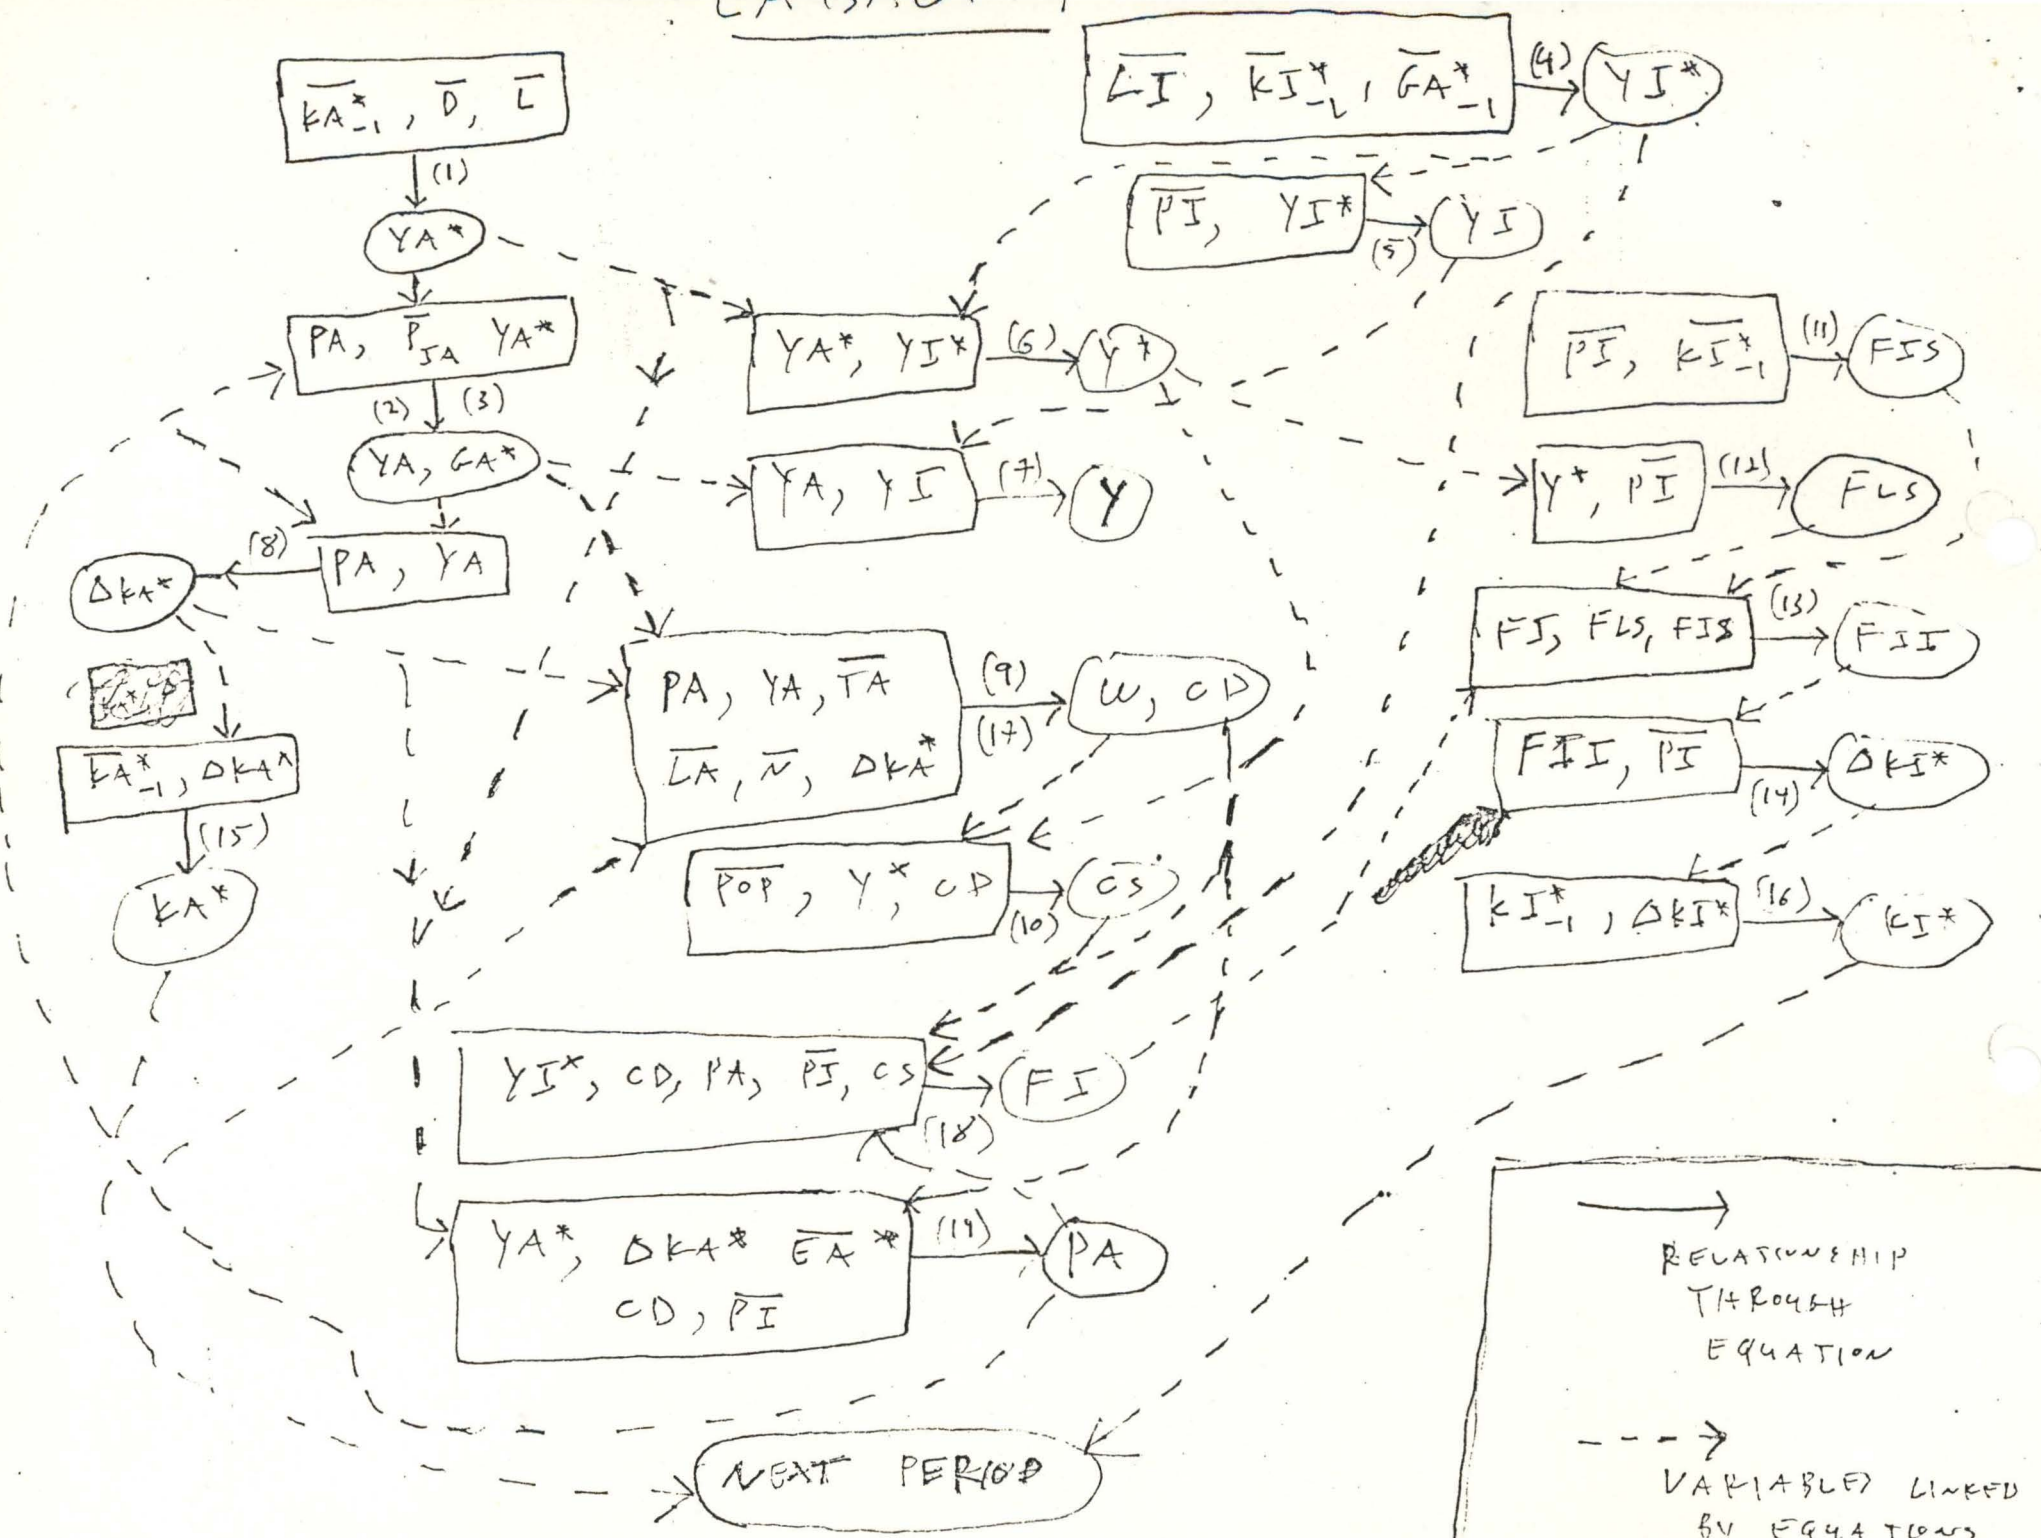 K̅A̅*₋₁, D̅, L̅
(1)
YA*
PA, P̅JA YA*
(2) (3)
YA, GA*
PA, YA
(8)
ΔKA*
K̅A̅*₋₁, ΔKA*
(15)
KA*
L̅I̅, K̅I̅*₋₁, G̅A̅*₋₁
(4)
YI*
P̅I̅, YI*
(5)
YI
YA*, YI*
(6)
Y*
YA, YI
(7)
Y
PA, YA, T̅A̅
L̅A̅, N̅, ΔKA*
(9)
(17)
W, CD
P̅O̅P̅, Y*, CD
(10)
CS
YI*, CD, PA, P̅I̅, CS
(18)
FI
YA*, ΔKA* E̅A̅*
CD, P̅I̅
(19)
PA
P̅I̅, K̅I̅*₋₁
(11)
FIS
Y*, P̅I̅
(12)
FLS
FI, FLS, FIS
(13)
FII
FII, P̅I̅
(14)
ΔKI*
KI*₋₁, ΔKI*
(16)
KI*
NEXT PERIOD
RELATIONSHIP
THROUGH
EQUATION
VARIABLES LINKED
BY EQUATIONS